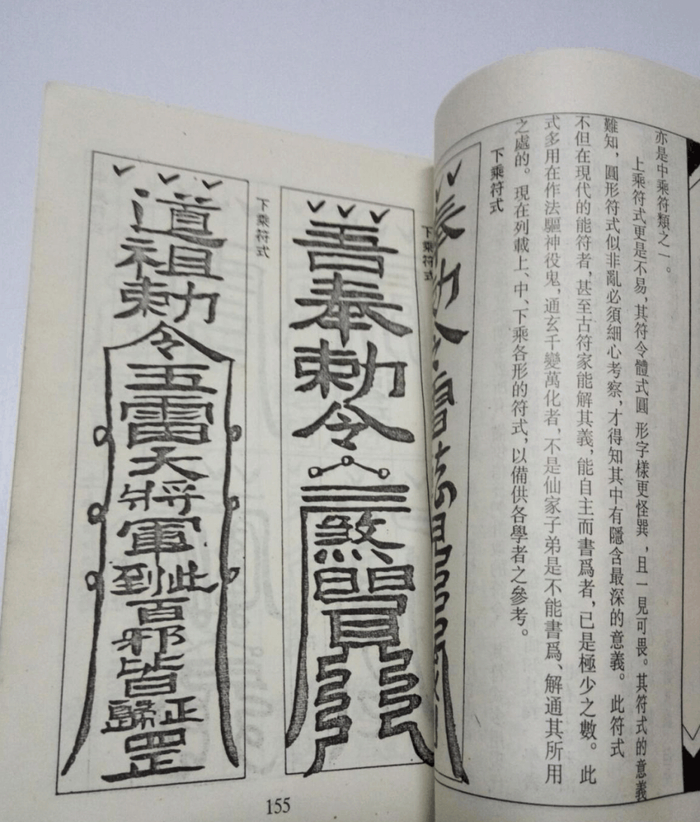 亦是中乘符類之一。
上乘符式更是不易,其符令體式圓 形字樣更怪巽,且一見可畏。其符式的意義
難知,圓形符式似非亂必須細心考察,才得知其中有隱含最深的意義。此符式
不但在現代的能符者,甚至古符家能解其義,能自主而書爲者,已是極少之數。此
式多用在作法驅神役鬼,通玄千變萬化者,不是仙家子弟是不能書爲、解通其所用
之處的。現在列載上、中、下乘各形的符式,以備供各學者之參考。
下乘符式
下乘符式
奉勅令
三煞
下乘符式
道祖勅令五雷大將軍到此百邪皆歸正罡
155